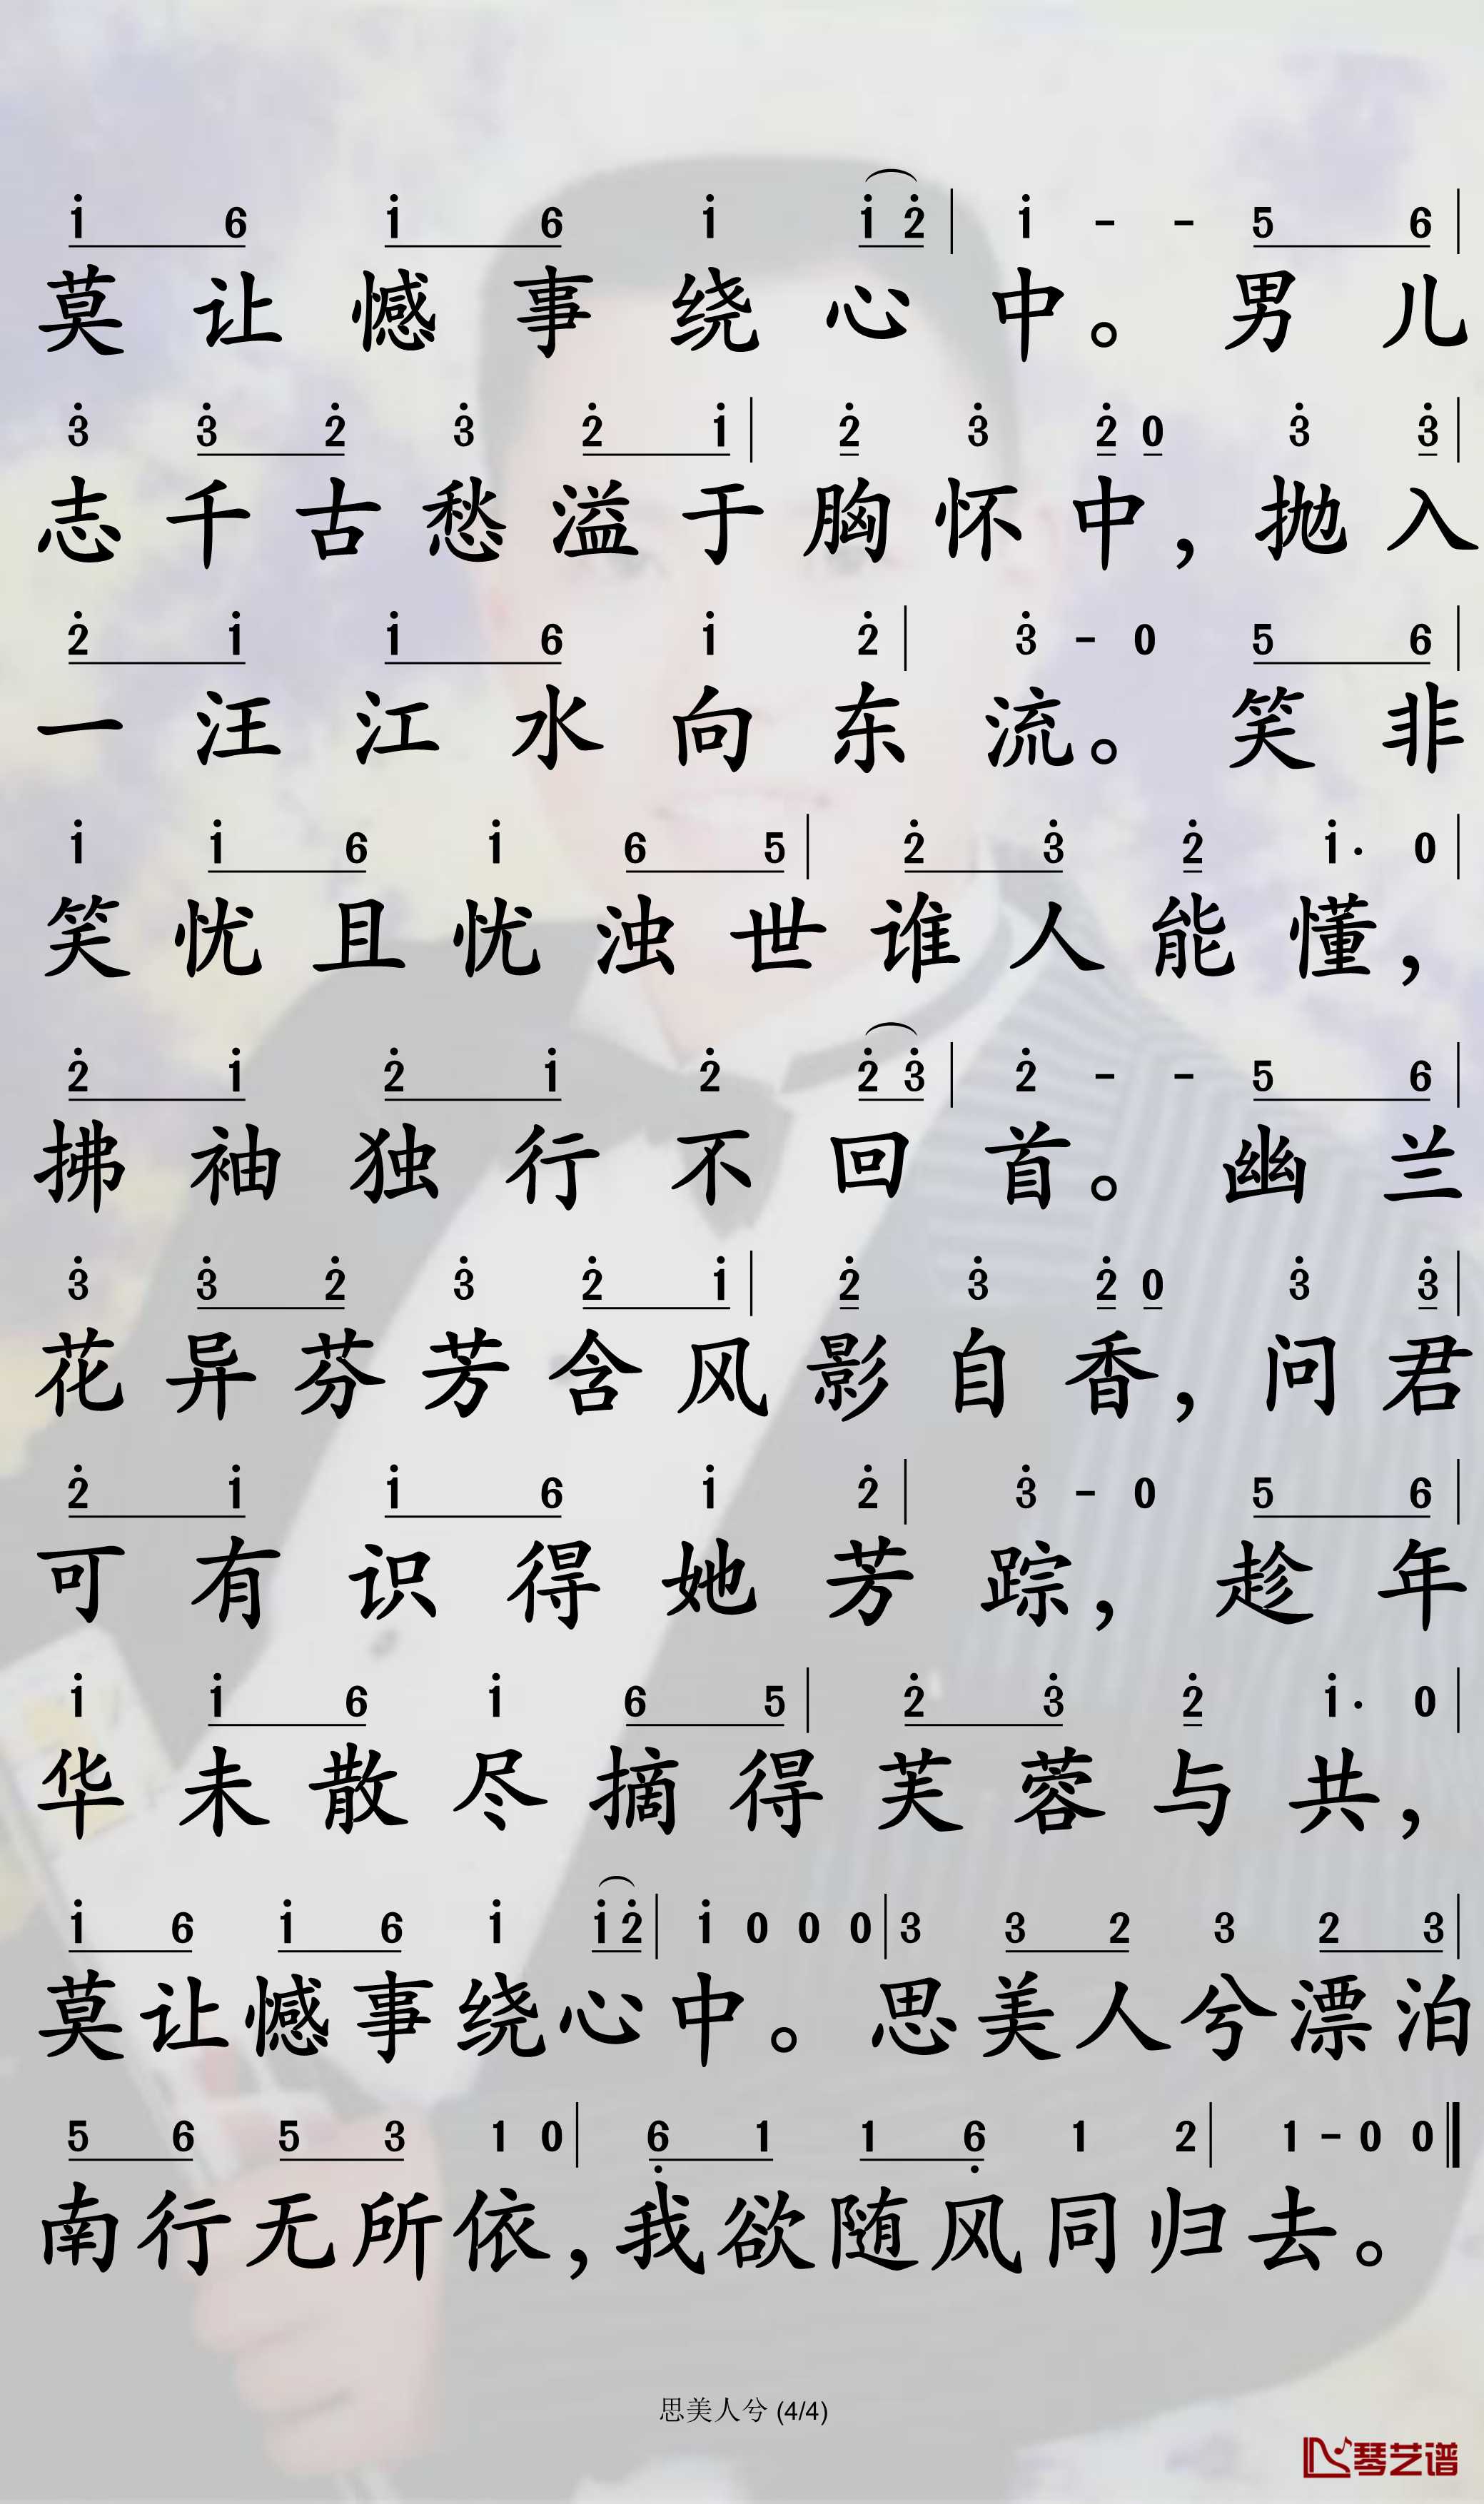 i 6 i 6 i i 2 | i - - 5 6 |
莫让憾事绕心中。男儿
3 3 2 3 2 i | 2 3 2 0 3 3 |
志千古愁溢于胸怀中，抛入
2 i i 6 i 2 | 3 - 0 5 6 |
一汪江水向东流。笑非
i i 6 i 6 5 | 2 3 2 i· 0 |
笑忧且忧浊世谁人能懂，
2 i 2 i 2 2 3 | 2 - - 5 6 |
拂袖独行不回首。幽兰
3 3 2 3 2 i | 2 3 2 0 3 3 |
花异芬芳含风影自香，问君
2 i i 6 i 2 | 3 - 0 5 6 |
可有识得她芳踪，趁年
i i 6 i 6 5 | 2 3 2 i· 0 |
华未散尽摘得芙蓉与共，
i 6 i 6 i i 2 | i 0 0 0 | 3 3 2 3 2 3 |
莫让憾事绕心中。思美人兮漂泊
5 6 5 3 1 0 | 6 1 1 6 1 2 | 1 - 0 0 ‖
南行无所依，我欲随风同归去。
思美人兮 (4/4)
琴艺谱